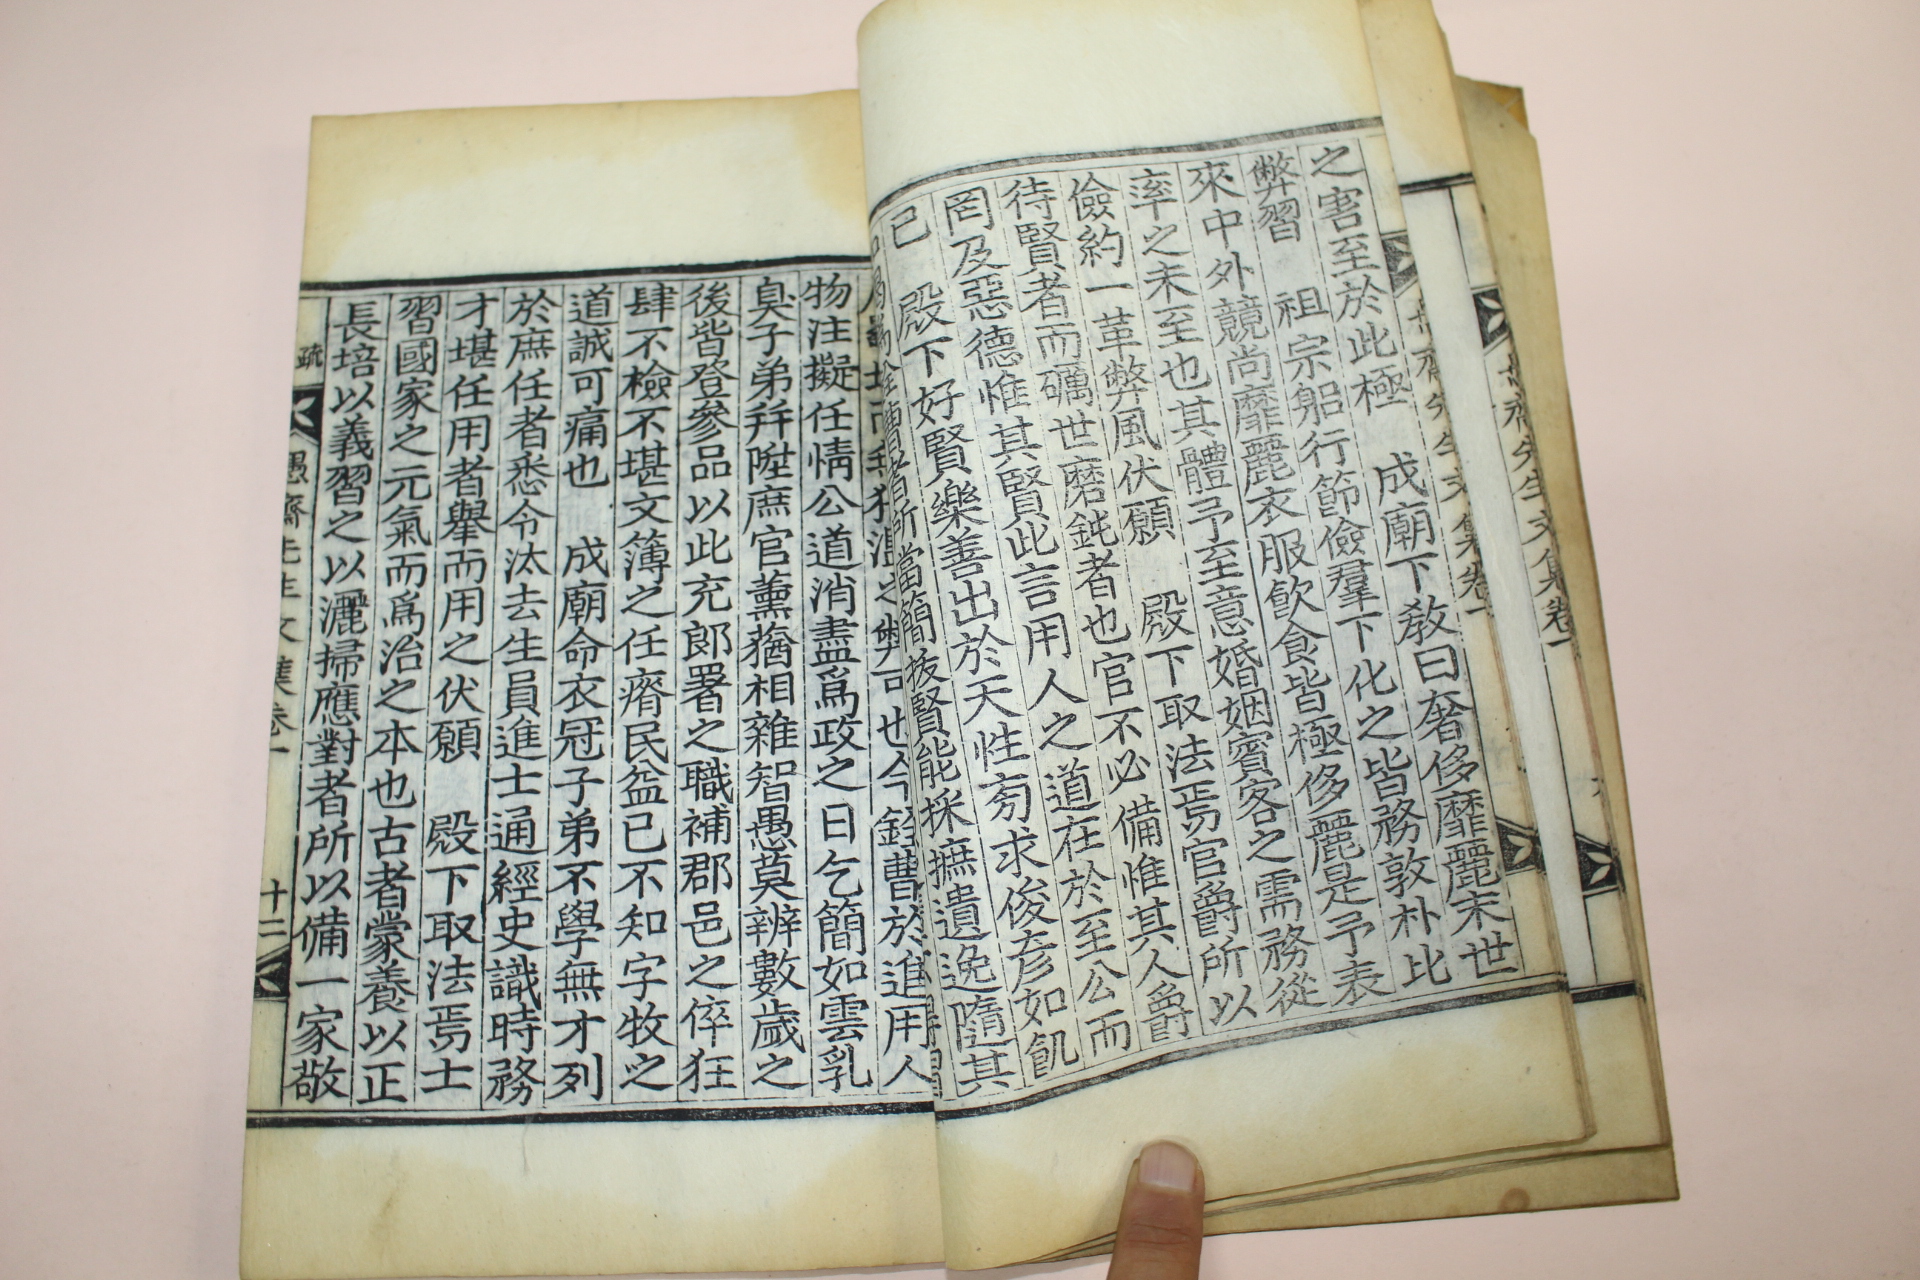 之害至於此極　成廟下敎曰奢侈靡麗末世
弊習　祖宗躬行節儉羣下化之皆務敦朴比
來中外競尚靡麗衣服飮食皆極侈麗是予表
率之未至也其體予至意婚姻賓客之需務從
儉約一革弊風伏願　殿下取法焉官爵所以
待賢者而礪世磨鈍者也官不必備惟其人爵
罔及惡德惟其賢此言用人之道在於至公而
已　殿下好賢樂善出於天性旁求俊彦如飢
所當簡拔賢能採摭遺逸隨其
也今銓曹於進用人
物注擬任情公道消盡爲政之日乞簡如雲乳
臭子弟幷陞庶官薰蕕相雜智愚莫辨數歲之
後皆登參品以此充郞署之職補郡邑之倅狂
肆不檢不堪文簿之任瘠民益已不知字牧之
道誠可痛也　成廟命衣冠子弟不學無才列
於庶任者悉令汰去生員進士通經史識時務
才堪任用者擧而用之伏願　殿下取法焉士
習國家之元氣而爲治之本也古者蒙養以正
長培以義習之以灑掃應對者所以備一家敬
疏
愚齋先生文集卷一
十二